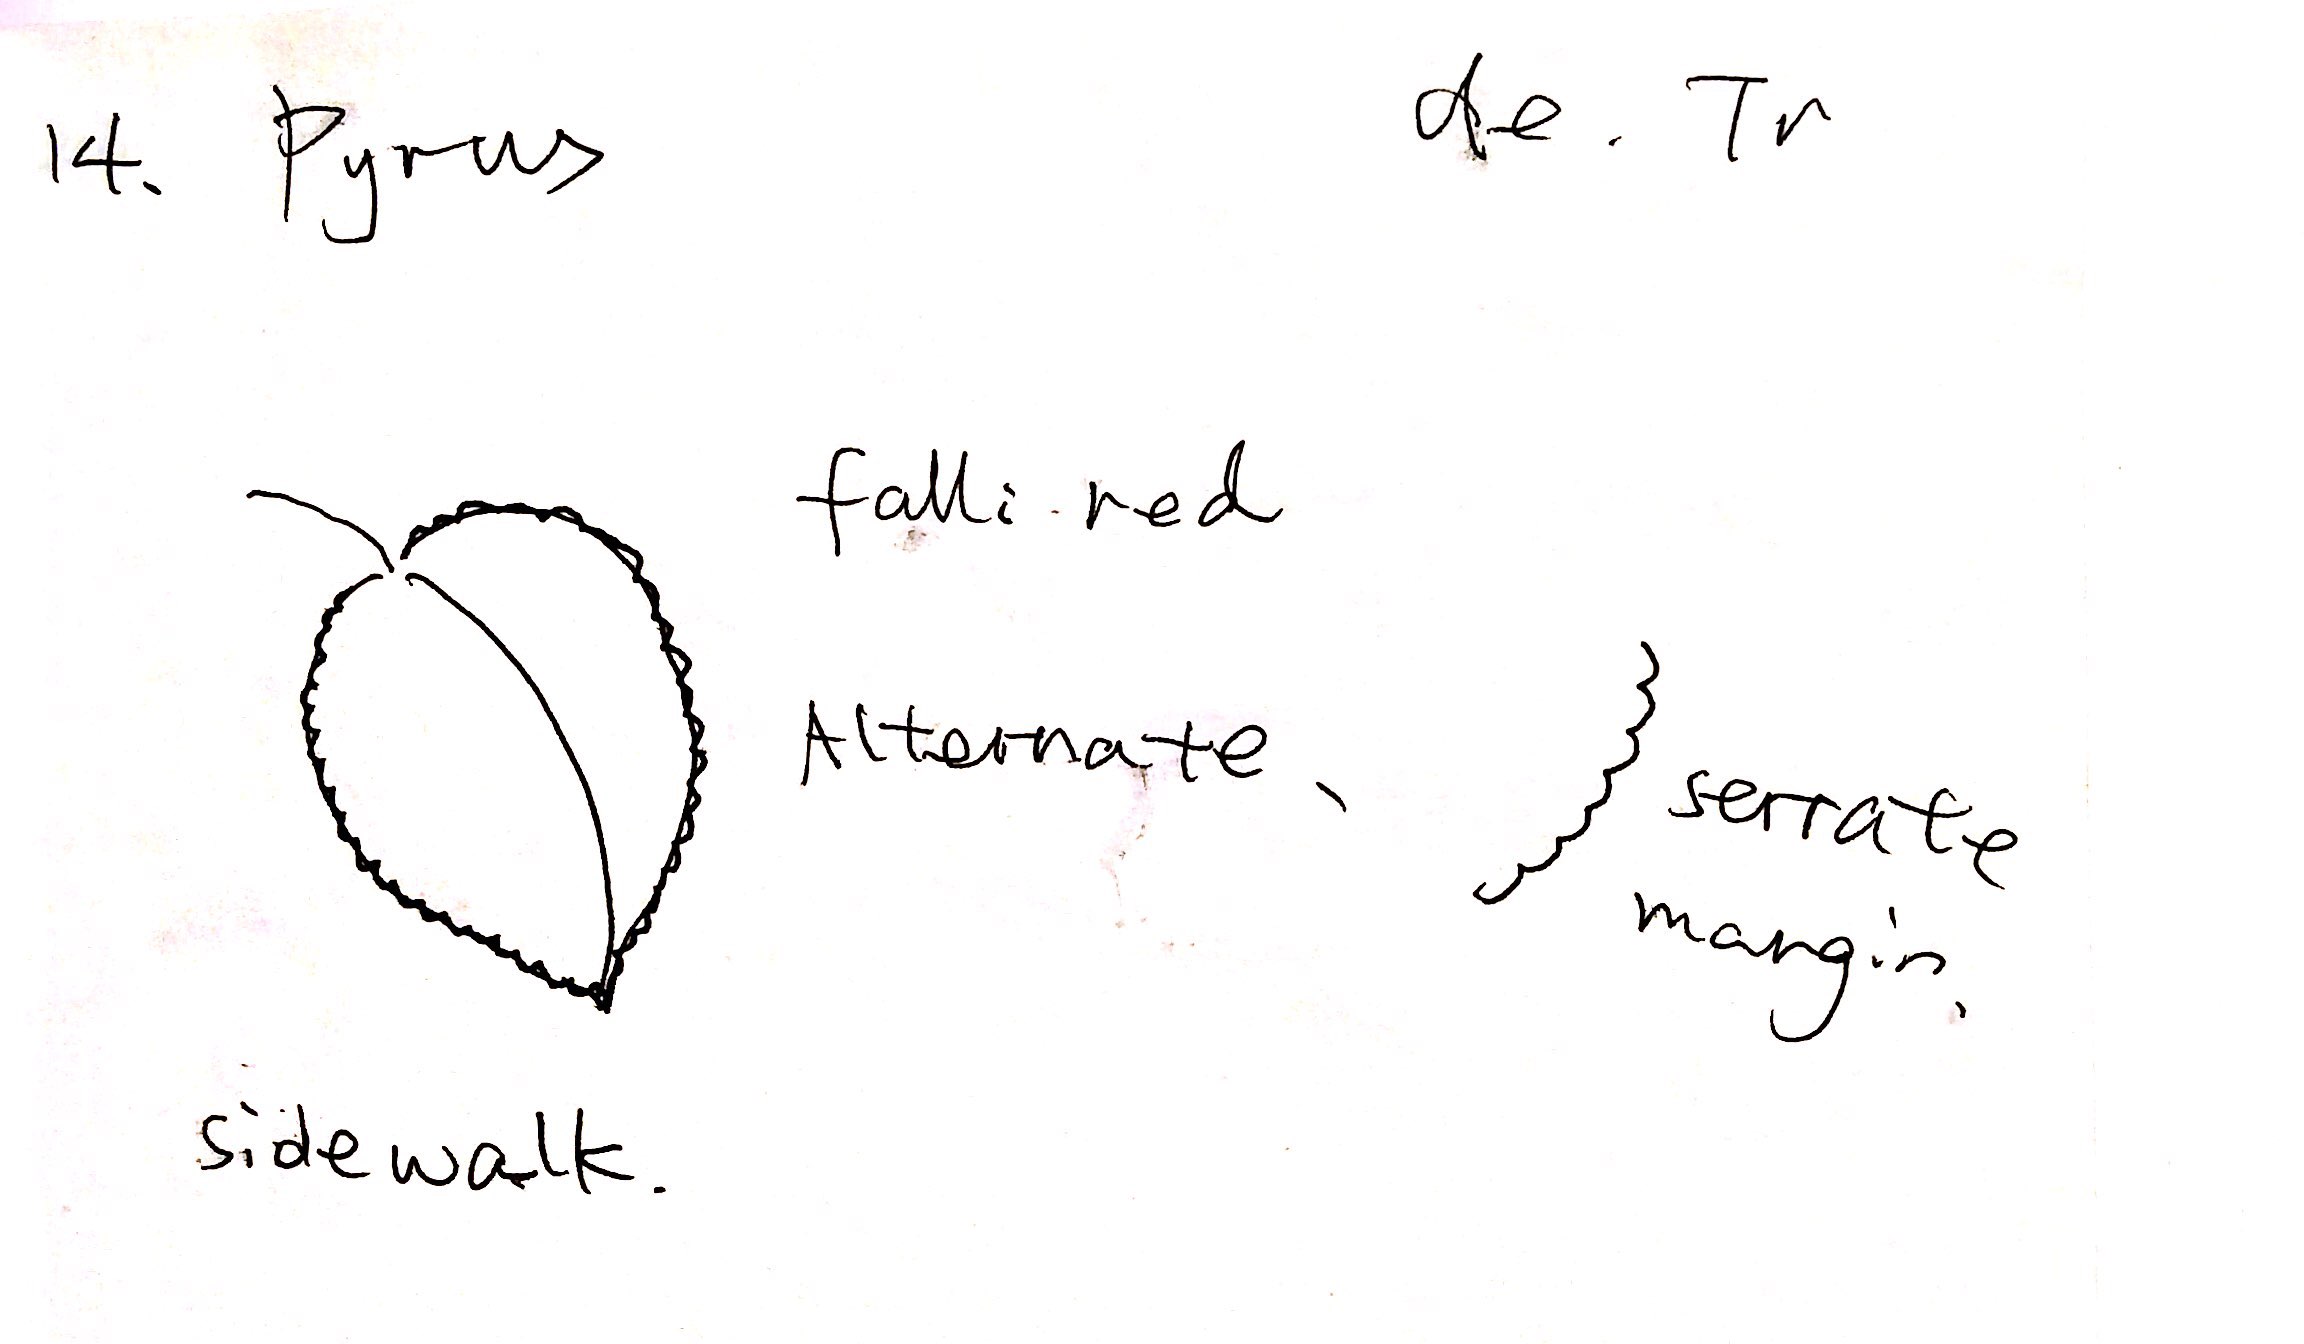 14. Pyrus
de. Tr
fall: red
Alternate.
serrate
margin.
sidewalk.